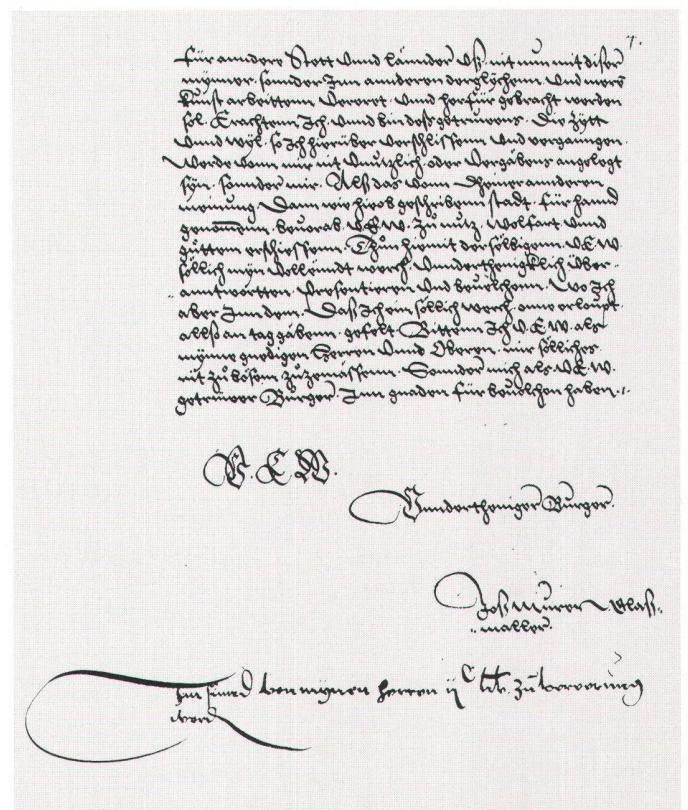 7.
für andere Stett vnnd länder vß, nit nun mit diser
myner, sonder Inn anderen derglychenn, vnd mers
kunst arbeittenn. Geeret. vnnd herfür gebracht werden
söl. Erachtenn Ich. vnnd bin deß getrüwens. Die Zytt
vnnd wyl, so Ich hierüber verschlissenn vnd vergangen.
Werde vonn mir nit vnnützlich. oder vergäbens angelegt
syn. sonder mir. Alß das vonn
meinung. Dann wie hieob geschribenn stadt. für hand
genommen. beuorab. V.E.W. Zů nutz. wolfart. vnnd
gůttem erschiessenn. Thůn hiemit derselbigenn. V.E.W.
söllich myn vollenndt werch. vnnderthenigklich über-
antwortten. Presentieren vnd beuelhenn. Wo Ich
aber Inn dem. Das Ich ein söllich werch. one erloupt
allso an tag gäbenn. gefelt. Bittenn Ich V.E.W. als
myne gnedigen Herren vnnd Oberen. mir sölliches
nit zů bösem zůzemässenn. Sonnder mich als V.E.W.
getrüwer Burger. Inn gnaden für beuolchen haben.
V. E. W.
Vnndertheniger Burger.
Jos Murer Glaß-
maller.
Im sind von mynen herren ij C lb. zu vererung
word